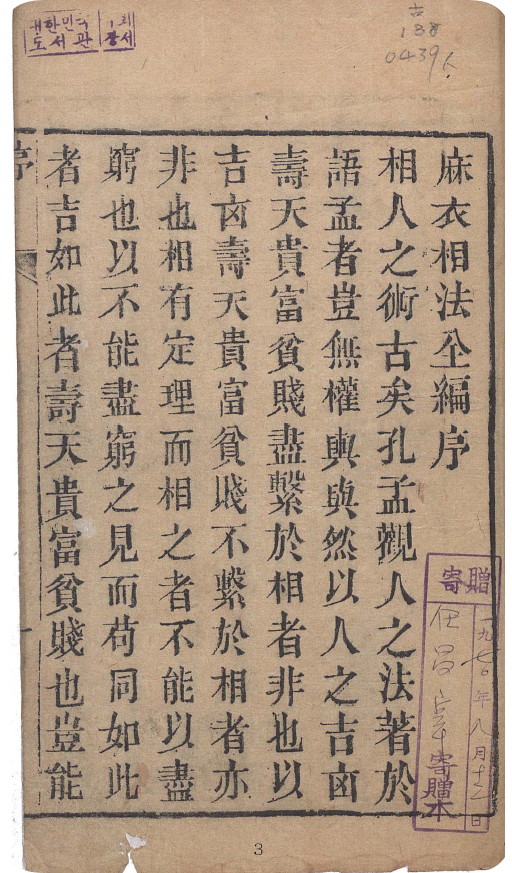 대한민국 국회
도서관 장서
古
138
0439人
麻衣相法全編序
相人之術古矣孔孟觀人之法著於
語孟者豈無權輿與然以人之吉凶
壽夭貴富貧賤盡繫於相者非也以
吉凶壽夭貴富貧賤不繫於相者亦
非也相有定理而相之者不能以盡
窮也以不能盡窮之見而苟同如此
者吉如此者壽夭貴富貧賤也豈能
序
一
寄贈
一九七〇年八月十二日
寄贈本
3